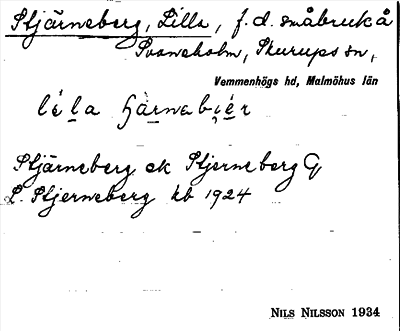 Stjärneberg, Lilla, f. d. småbruk å
Svaneholm, Skurups sn,
Vemmenhögs hd, Malmöhus län
Stjärneberg ek Stjerneberg G
L. Stjerneberg kb 1924
NILS NILSSON 1934